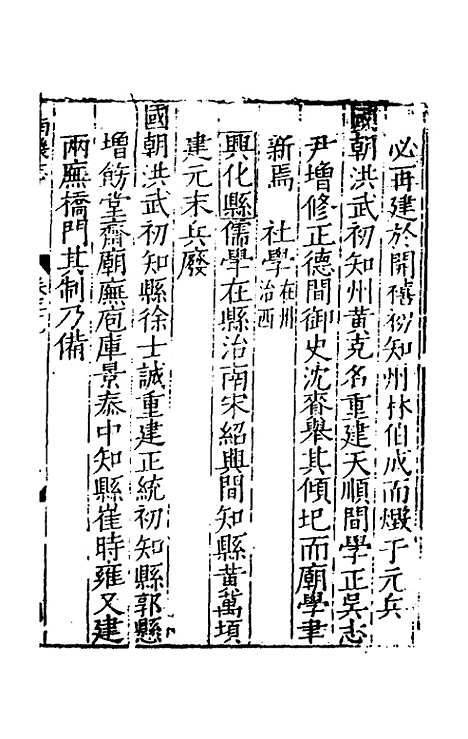 必再建於開禧初知州林伯成而燬于元兵
國朝洪武初知州黃克名重建天順間學正吳志
尹增修正德間御史沈喬舉其傾圮而廟學聿
新焉 社學在州治西
興化縣儒學在縣治南宋紹興間知縣黃萬頃
建元末兵廢
國朝洪武初知縣徐士誠重建正統初知縣郭懸
增飭堂齋廟廡庖庫景泰中知縣崔時雍又建
兩廡橋門其制乃備